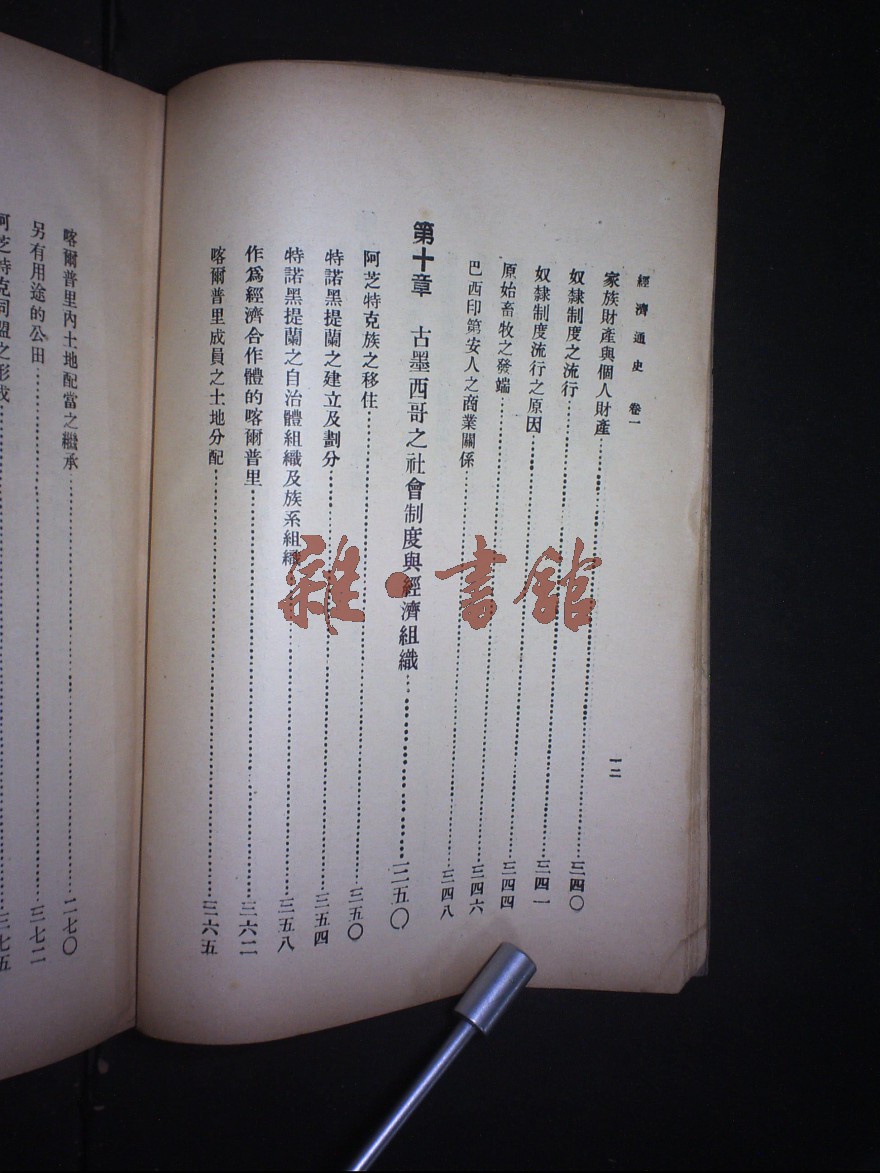 經濟通史　卷一
一二
家族財產與個人財產……三四〇
奴隸制度之流行……三四一
奴隸制度流行之原因……三四四
原始畜牧之發端……三四六
巴西印第安人之商業關係……三四八
第十章　古墨西哥之社會制度與經濟組織……三五〇
阿芝特克族之移住……三五〇
特諾黑提蘭之建立及劃分……三五四
特諾黑提蘭之自治體組織及族系組織……三五八
作爲經濟合作體的喀爾普里……三六二
喀爾普里成員之土地分配……三六五
喀爾普里內土地配當之繼承……二七〇
另有用途的公田……三七二
阿芝特克同盟之形成……三七五
雜·書館